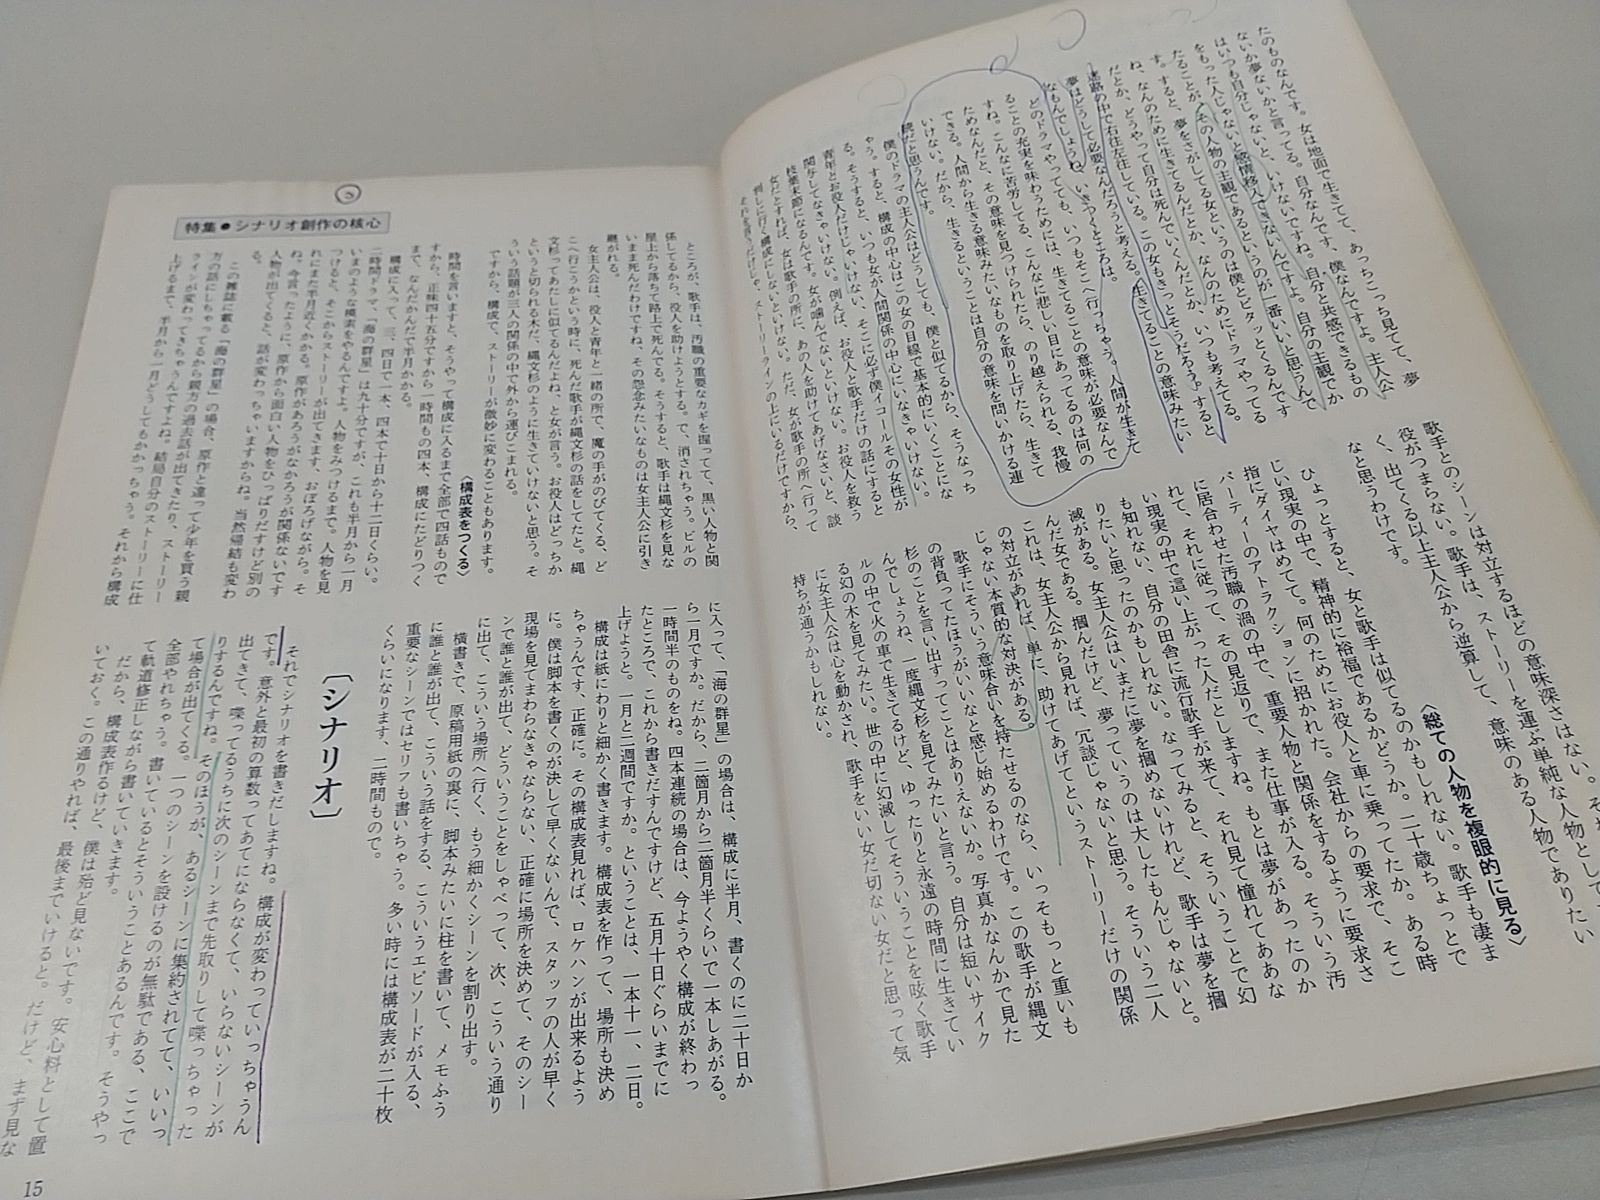 たのものなんです。女は地面で生きてて、あっちこっち見てて、夢
ないか夢ないかと言ってる。自分なんです、僕なんですよ。主人公
はいつも自分じゃないと、いけないですね。自分と共感できるもの
をもった人じゃないと感情移入できないんですよ。自分の主観でか
たることが、その人物の主観であるというのが一番いいと思うんで
す。すると、夢をさがしてる女というのは僕とピタッとくるんです
ね、なんのために生きてるんだとか、なんのためにドラマやってる
だとか、どうやって自分は死んでいくんだとか、いつも考えてる。
迷路の中で右往左往している。この女もきっとそうだろう。すると
夢はどうして必要なんだろうと考える。生きてることの意味みたい
なもんでしょうね、いきつくところは。
どのドラマやってても、いつもそこへ行っちゃう。人間が生きて
ることの充実を味わうためには、生きてることの意味が必要なんで
すね。こんなに苦労してる、こんなに悲しい目にあってるのは何の
ためなんだと、その意味を見つけられたら、のり越えられる、我慢
できる。人間から生きる意味みたいなものを取り上げたら、生きて
いけない。だから、生きるということは自分の意味を問いかける連
続だと思うんです。
僕のドラマの主人公はどうしても、僕と似てるから、そうなっち
ゃう。すると、構成の中心はこの女の目線で基本的にいくことにな
る。そうすると、いつも女が人間関係の中心にいなきゃいけない。
青年とお役人だけじゃいけない、そこに必ず僕イコールその女性が
関与してなきゃいけない。例えば、お役人と歌手だけの話にすると
枝葉末節になるんです。女が噛んでないといけない。お役人を救う
女だとすれば、女は歌手の所に、あの人を助けてあげなさいと、談
判しに行く構成にしないといけない。ただ、女が歌手の所へ行って
それを言うだけじゃ、ストーリーラインの上にいるだけですから、
歌手とのシーンは対立するほどの意味深さはない。そ
役がつまらない。歌手は、ストーリーを運ぶ単純な人物として
く、出てくる以上主人公から逆算して、意味のある人物でありたい
なと思うわけです。
〈総ての人物を複眼的に見る〉
ひょっとすると、女と歌手は似てるのかもしれない。歌手も凄ま
じい現実の中で、精神的に裕福であるかどうか。二十歳ちょっとで
指にダイヤはめてて。何のためにお役人と車に乗ってたか。ある時
パーティーのアトラクションに招かれた。会社からの要求で、そこ
に居合わせた汚職の渦の中で、重要人物と関係をするように要求さ
れて、それに従って、その見返りで、また仕事が入る。そういう汚
い現実の中で這い上がった人だとしますね。もとは夢があったのか
も知れない、自分の田舎に流行歌手が来て、それ見て憧れてああな
りたいと思ったのかもしれない。なってみると、そういうことで幻
滅がある。女主人公はいまだに夢を摑めないけれど、歌手は夢を摑
んだ女である。摑んだけど、夢っていうのは大したもんじゃないと。
これは、女主人公から見れば、冗談じゃないと思う。そういう二人
の対立があれば、単に、助けてあげてというストーリーだけの関係
じゃない本質的な対決がある。
歌手にそういう意味合いを持たせるのなら、いっそもっと重いも
の背負ってたほうがいいなと感じ始めるわけです。この歌手が縄文
杉のことを言い出すってことはありえないか。写真かなんかで見た
んでしょうね、一度縄文杉を見てみたいと言う。自分は短いサイク
ルの中で火の車で生きてるけど、ゆったりと永遠の時間に生きてい
る幻の木を見てみたい。世の中に幻滅してそういうことを呟く歌手
に女主人公は心を動かされ、歌手をいい女だ切ない女だと思って気
持ちが通うかもしれない。
特集●シナリオ創作の核心
ところが、歌手は、汚職の重要なカギを握ってて、黒い人物と関
係してるから、役人を助けようとする。で、消されちゃう。ビルの
屋上から落ちて路上で死んでる。そうすると、歌手は縄文杉を見な
いまま死んだわけですね、その怨念みたいなものは女主人公に引き
継がれる。
女主人公は、役人と青年と一緒の所で、魔の手がのびてくる、ど
こへ行こうかという時に、死んだ歌手が縄文杉の話をしてたと。縄
文杉ってあたしに似てるんだよね、と女が言う。お役人はどっちか
というと切られる木だ、縄文杉のように生きていけないと思う。そ
ういう話題が三人の関係の中で外から運びこまれる。
ですから、構成で、ストーリーが微妙に変わることもあります。
〈構成表をつくる〉
時間を言いますと、そうやって構成に入るまで全部で四話もので
すから、正味四十五分ですから一時間もの四本、構成にたどりつく
まで、なんだかんだで半月かかる。
構成に入って、三、四日で一本、四本で十日から十二日くらい。
二時間ドラマ、「海の群星」は九十分ですが、これも半月から一月
いまのような模索をやるんですよ。人物をみつけるまで。人物を見
つけると、そこからストーリーが出てきます、おぼろげながら。そ
れにまた半月近くかかる。原作があろうがなかろうが関係ないです
ね。今言ったように、原作から面白い人物をひっぱりだすけど別の
人物が出てくると、話が変わっちゃいますからね。当然帰結も変わ
る。
この雑誌に載る「海の群星」の場合、原作と違って少年を買う親
方の話にしちゃってるから親方の過去話が出てきたり、ストーリー
ラインが変わってきちゃうんですよね。結局自分のストーリーに仕
上げるまで、半月から一月どうしてもかかっちゃう。それから構成
に入って、「海の群星」の場合は、構成に半月、書くのに二十日か
ら一月ですか。だから、二箇月から二箇月半くらいで一本しあがる。
一時間半のものをね。四本連続の場合は、今ようやく構成が終わっ
たところで、これから書きだすんですけど、五月十日ぐらいまでに
上げようと。一月と二週間ですか。ということは、一本十一、二日。
構成は紙にわりと細かく書きます。構成表を作って、場所も決め
ちゃうんです、正確に。その構成表見れば、ロケハンが出来るよう
に。僕は脚本を書くのが決して早くないんで、スタッフの人が早く
現場を見てまわらなきゃならない、正確に場所を決めて、そのシー
ンで誰と誰が出て、どういうことをしゃべって、次、こういう通り
に出て、こういう場所へ行く、もう細かくシーンを割り出す。
横書きで、原稿用紙の裏に、脚本みたいに柱を書いて、メモふう
に誰と誰が出て、こういう話をする、こういうエピソードが入る、
重要なシーンではセリフも書いちゃう。多い時には構成表が二十枚
くらいになります、二時間もので。
〔シナリオ〕
それでシナリオを書きだしますね。構成が変わっていっちゃうん
です。意外と最初の算数ってあてにならなくて、いらないシーンが
出てきて、喋ってるうちに次のシーンまで先取りして喋っちゃった
りするんですね。そのほうが、あるシーンに集約されてて、いいっ
て場合が出てくる。一つのシーンを設けるのが無駄である、ここで
全部やれちゃう。書いているとそういうことあるんです。そうやっ
て軌道修正しながら書いていきます。
だから、構成表作るけど、僕は殆ど見ないです。安心料として置
いておく。この通りやれば、最後までいけると。だけど、まず見な
15